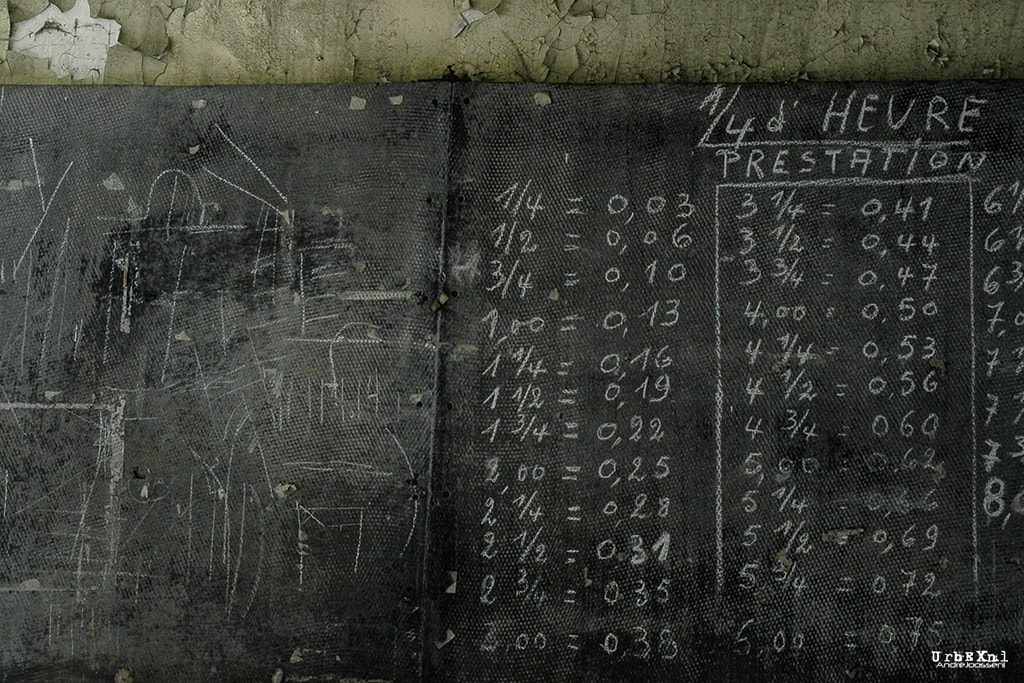 1/4 d' HEURE
PRESTATION
1/4 = 0,03
1/2 = 0,06
3/4 = 0,10
1,00 = 0,13
1 1/4 = 0,16
1 1/2 = 0,19
1 3/4 = 0,22
2,00 = 0,25
2 1/4 = 0,28
2 1/2 = 0,31
2 3/4 = 0,35
3,00 = 0,38
3 1/4 = 0,41
3 1/2 = 0,44
3 3/4 = 0,47
4,00 = 0,50
4 1/4 = 0,53
4 1/2 = 0,56
4 3/4 = 060
5,00 = 0,62
5 1/4 = 0,66
5 1/2 = 0,69
5 3/4 = 0,72
6,00 = 0,75
6
6
6
7,
7
7
7
8,
UrbEXnl
AndreJoosseni